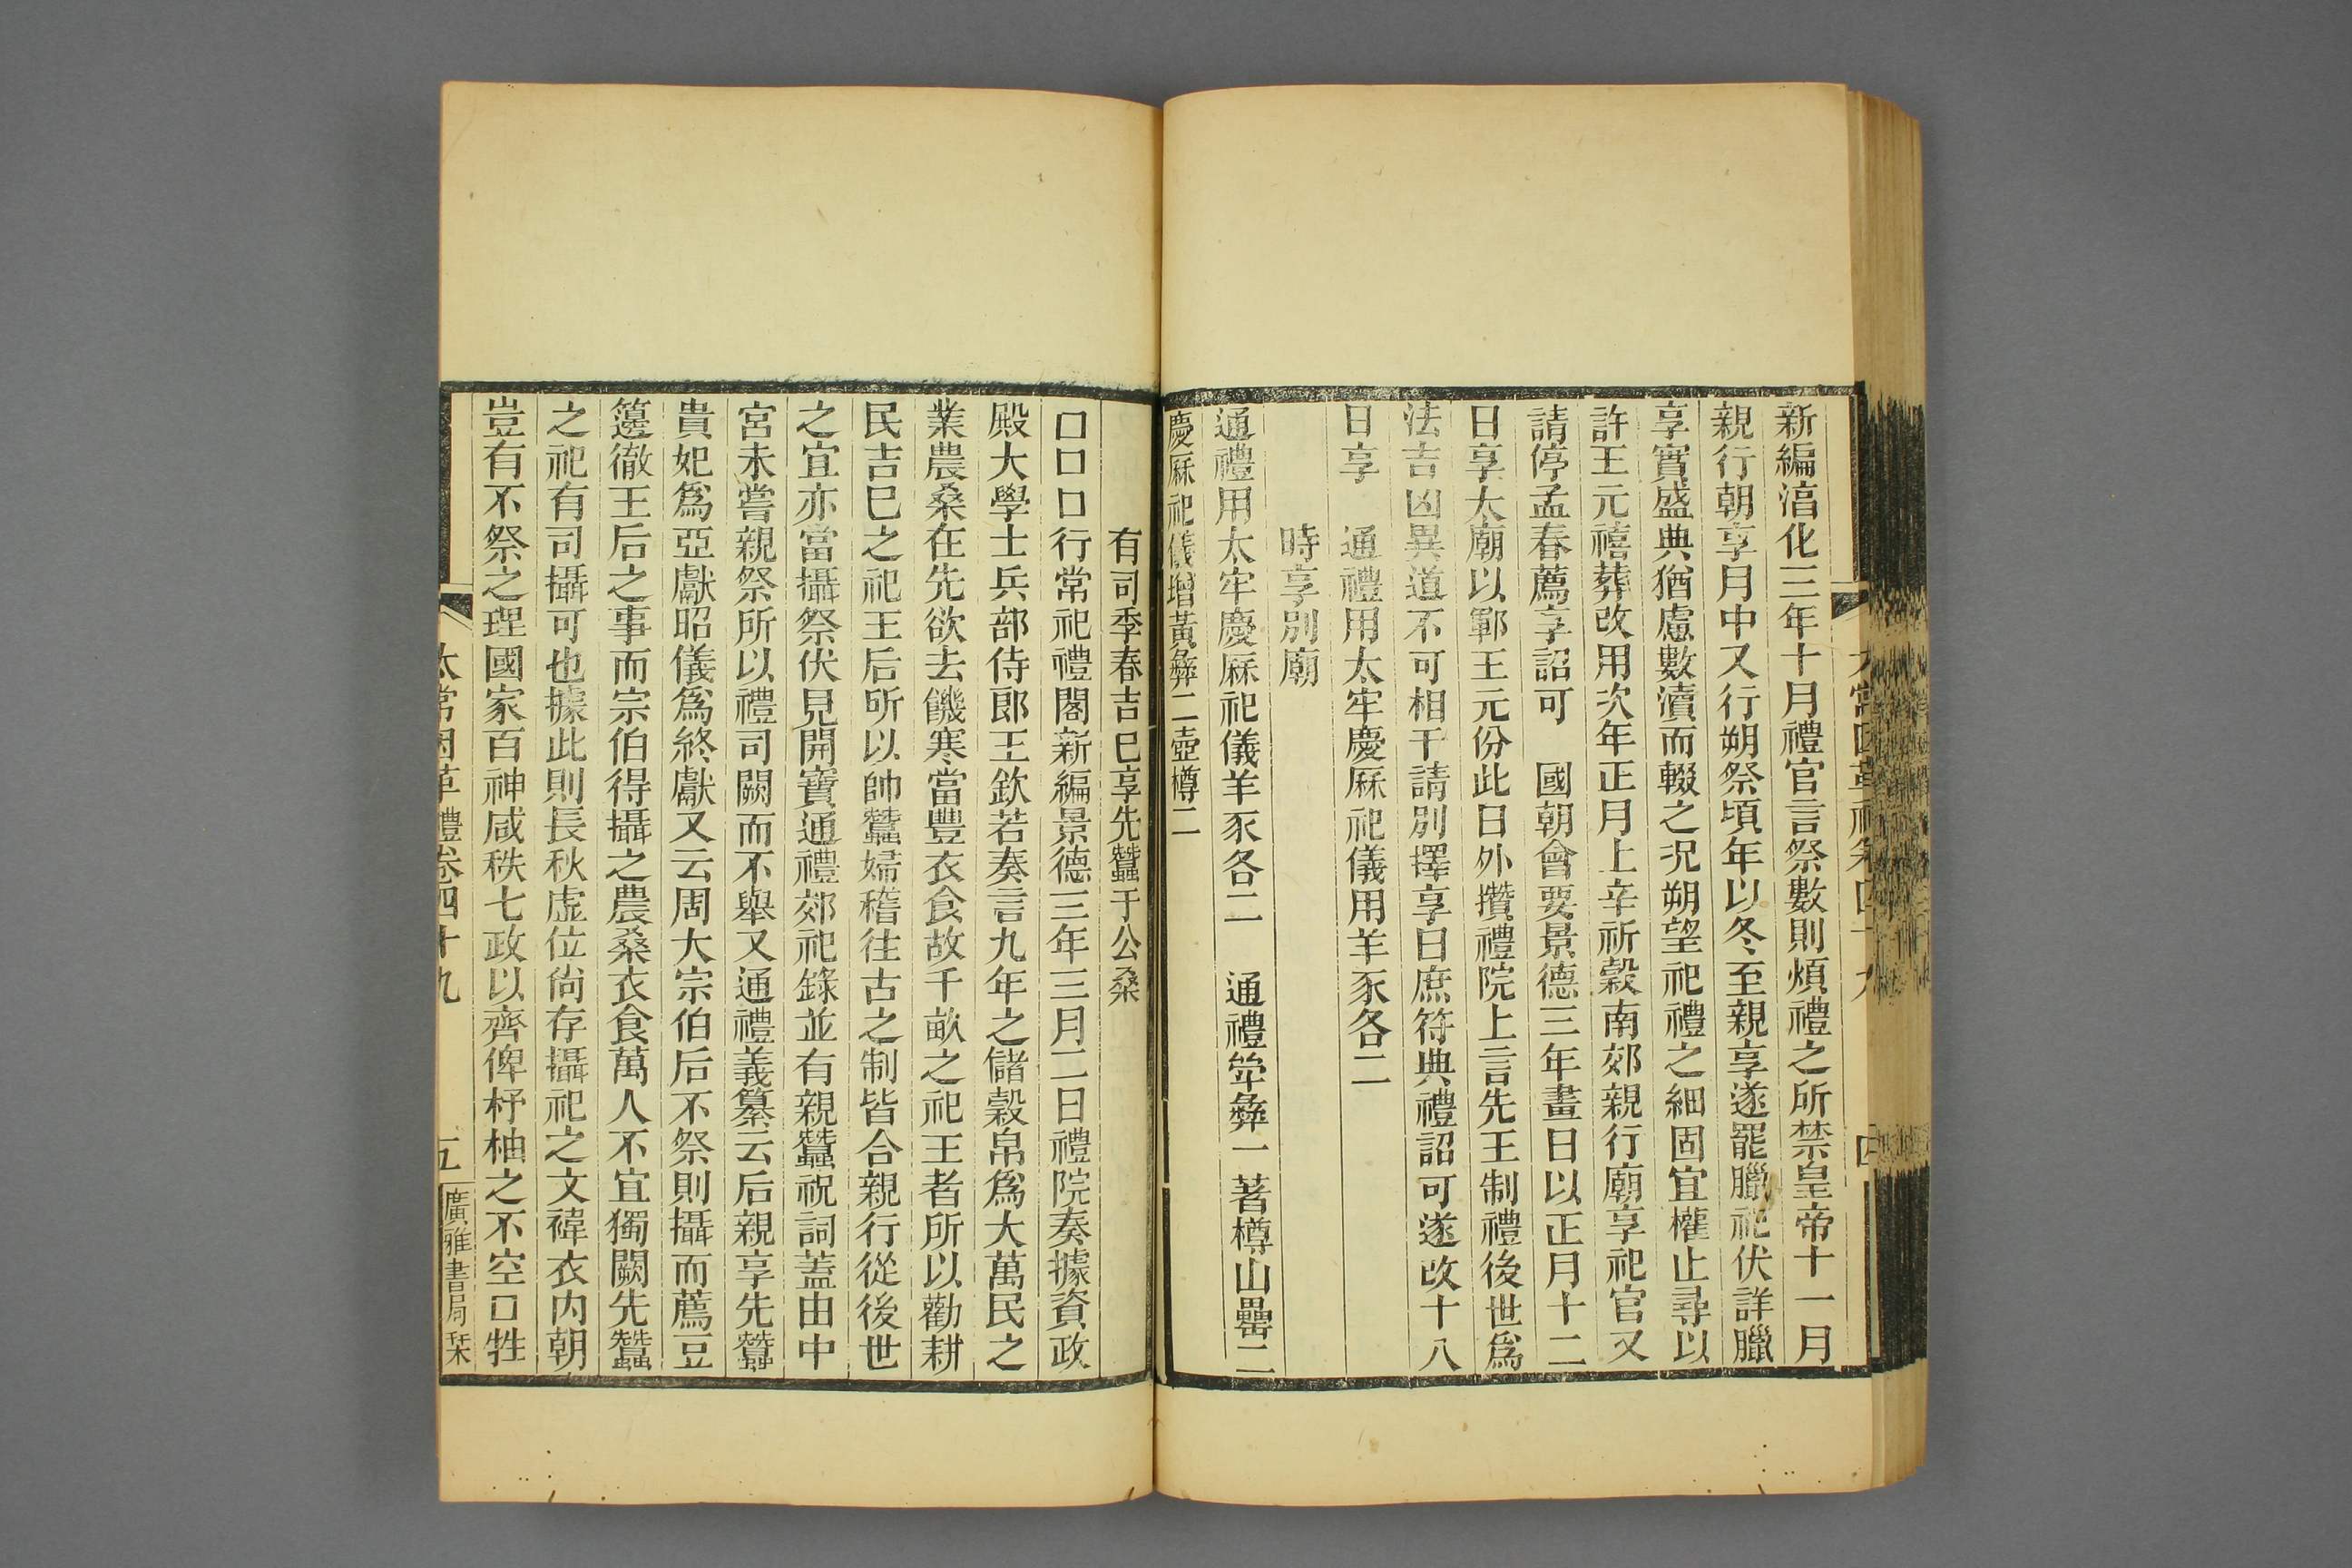 新編湻化三年十月禮官言祭數則煩禮之所禁皇帝十一月
親行朝享月中又行朔祭頃年以冬至親享遂罷臘祀伏詳臘
享實盛典猶慮數瀆而輟之況朔望祀禮之細固宜權止尋以
許王元禧葬改用次年正月上辛祈榖南郊親行廟享祀官又
請停孟春薦享詔可　國朝會要景德三年畫日以正月十二
日享太廟以鄆王元份此日外攢禮院上言先王制禮後世爲
法吉凶異道不可相干請別擇享日庶符典禮詔可遂改十八
日享　通禮用太牢慶厤祀儀用羊豕各二
時享別廟
通禮用太牢慶厤祀儀羊豕各二　通禮斝彝一著樽山罍二
慶厤祀儀增黃彝二壺樽二
有司季春吉巳享先蠶于公桑
口口口行常祀禮閣新編景德三年三月二日禮院奏據資政
殿大學士兵部侍郎王欽若奏言九年之儲榖帛爲大萬民之
業農桑在先欲去饑寒當豐衣食故千畝之祀王者所以勸耕
民吉巳之祀王后所以帥蠶婦稽往古之制皆合親行從後世
之宜亦當攝祭伏見開寶通禮郊祀錄並有親蠶祝詞蓋由中
宮未嘗親祭所以禮司闕而不舉又通禮義纂云后親享先蠶
貴妃爲亞獻昭儀爲終獻又云周大宗伯后不祭則攝而薦豆
籩徹王后之事而宗伯得攝之農桑衣食萬人不宜獨闕先蠶
之祀有司攝可也據此則長秋虛位尙存攝祀之文褘衣內朝
豈有不祭之理國家百神咸秩七政以齊俾杼柚之不空口牲
太常因革禮卷四十九　五　廣雅書局栞